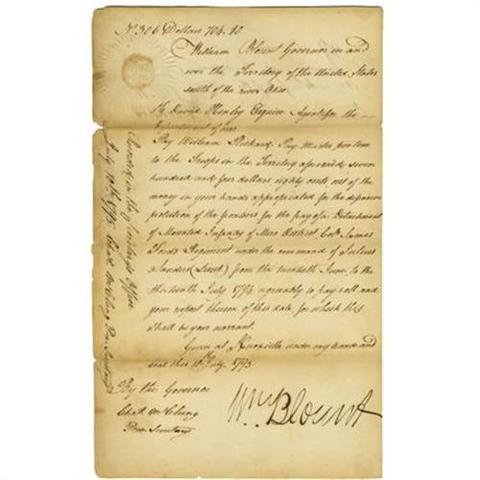 No. 306 Dollars 704.80
William Blount Governor in and
over the Territory of the United States
south of the river Ohio
To David Henley Esquire Agent for the
Department of War
Pay William Rickard Pay Master pro tem
to the Troops in the Territory aforesaid seven
hundred and four dollars eighty cents out of the
money in your hands appropriated for the defensive
protection of the frontiers for the pay of a Detachment
of Mounted Infantry of Mero District Colo. James
Fords Regiment under the command of Julius
Sanders (Lieut) from the twentieth June, to the
thirteenth July 1795 agreeably to pay roll and
your report thereon of this date for which this
shall be your warrant.
Given at Knoxville under my hand and
seal this July, 1795.
Wm. Blount
By the Governor
Chas. McClung
Pro. Secretary
Recorded in the Secretary's Office
July 1795 Chas. McClung Pro. Secretary